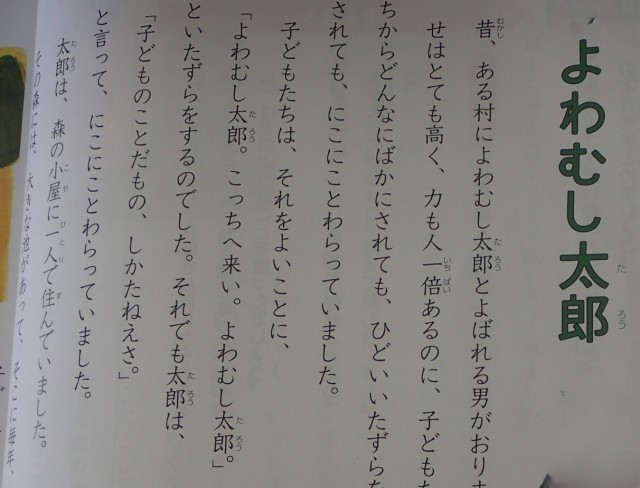 よわむし太郎
昔、ある村によわむし太郎とよばれる男がおりま
せはとても高く、力も人一倍あるのに、子どもた
ちからどんなにばかにされても、ひどいいたずらを
されても、にこにことわらっていました。
子どもたちは、それをよいことに、
「よわむし太郎。こっちへ来い。よわむし太郎。」
といたずらをするのでした。それでも太郎は、
「子どものことだもの、しかたねえさ。」
と言って、にこにことわらっていました。
太郎は、森の小屋に一人で住んでいました。
その森には、大きな池があって、そこに毎年、